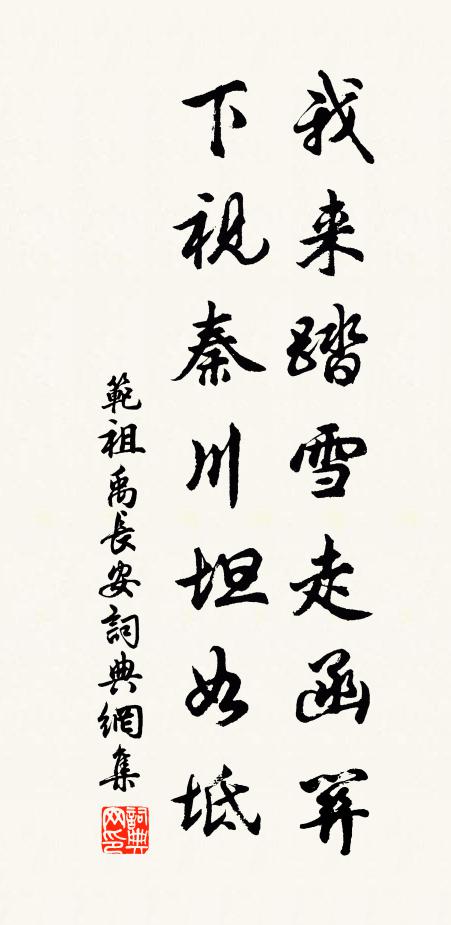 我来踏雪走函關
下視秦川坦如坻
範祖禹長安詞典網集
詞典網印